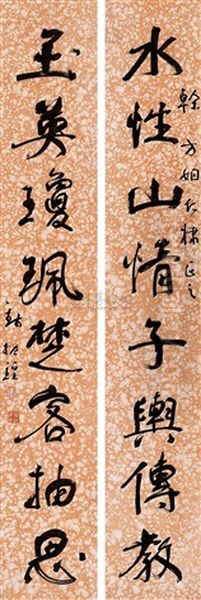 水性山情子舆傳教
幹方姻大棣正之
玉英瓊珮楚客抽思